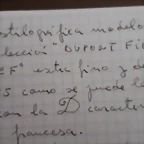 estilográfica modelo
lección "DUPONT FI
EF" extra fino y de
s como se puede le
on la D caracter
francesa.